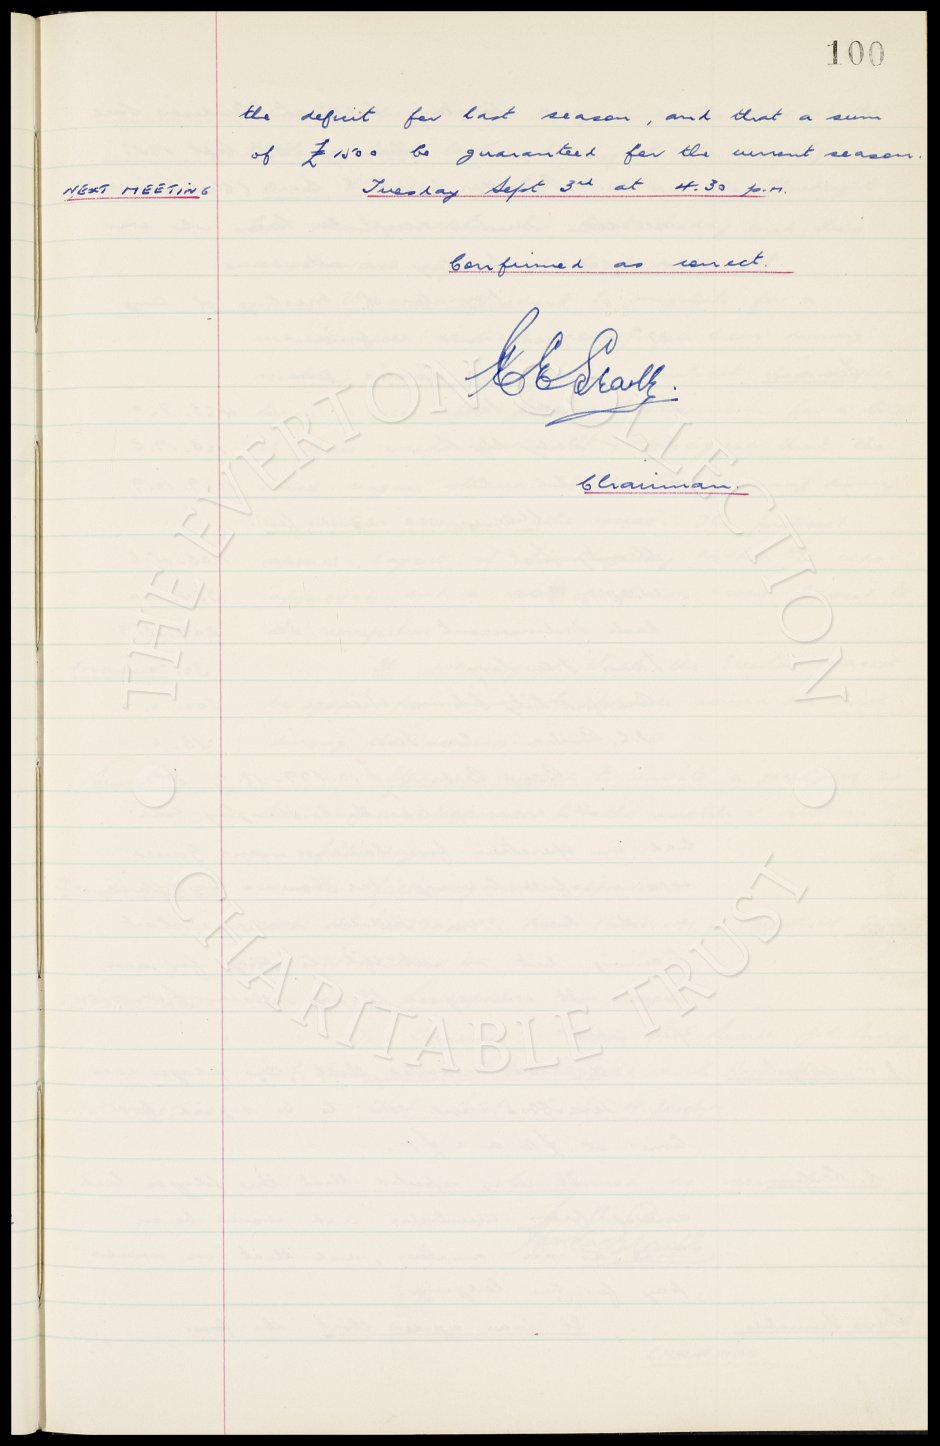 100
the deficit for last season, and that a sum
of £1500 be guaranteed for the current season.
NEXT MEETING Tuesday Sept 3rd at 4.30 p.m.
Confirmed as correct.
Chairman.
THE EVERTON COLLECTION
CHARITABLE TRUST